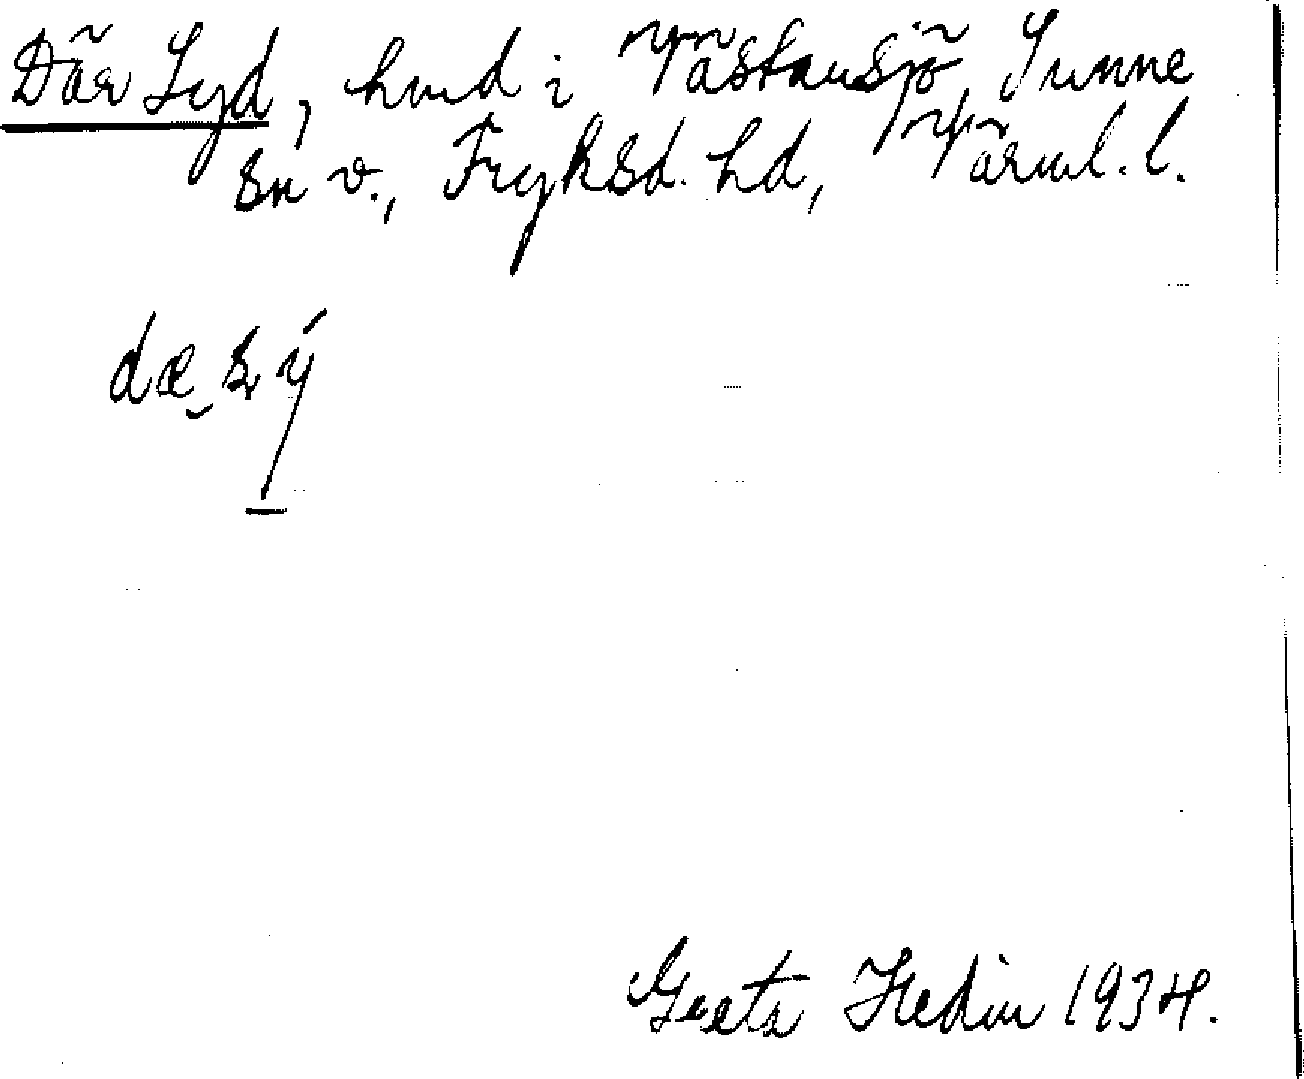 Där Syd, hmd i Västansjö, Sunne
sn v., Fryksd. hd, Värml. l.
Greta Hedin 1934.